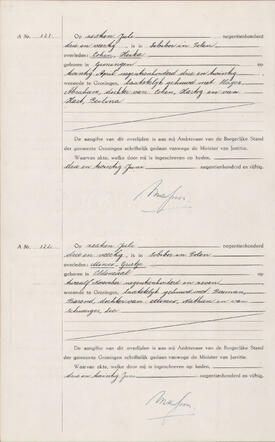 A Nr. 121.
Op zestien Juli negentienhonderd
drie en veertig, is in Sobibor in Polen
overleden: Cohen,
geboren in Groningen op
twintig April negentienhonderd drie en twintig
wonende te Groningen, laatstelijk gehuwd met
Abraham, dochter van Cohen, en van
De aangifte van dit overlijden is aan mij Ambtenaar van de Burgerlijke Stand
der gemeente Groningen schriftelijk gedaan vanwege de Minister van Justitie.
Waarvan akte, welke door mij is ingeschreven op heden,
drie en twintig Juni negentienhonderd en vijftig.
A Nr. 122.
Op zestien Juli negentienhonderd
drie en veertig, is in Sobibor in Polen
overleden:
geboren in Oldenzaal op
twaalf November negentienhonderd en zeven
wonende te Groningen, laatstelijk gehuwd met
Barend, dochter van en van
De aangifte van dit overlijden is aan mij Ambtenaar van de Burgerlijke Stand
der gemeente Groningen schriftelijk gedaan vanwege de Minister van Justitie.
Waarvan akte, welke door mij is ingeschreven op heden,
drie en twintig Juni negentienhonderd en vijftig.